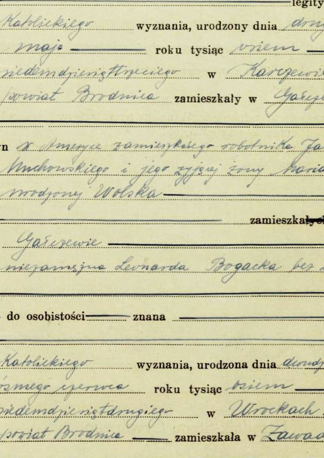 legity
Katolickiego wyznania, urodzony dnia
maja roku tysiąc osiem
siedemdziesiąttrzeciego w Karczewie
powiat Brodnica zamieszkały w Gałcze
yn w Ameryce zamieszkałego robotnika Ja
Muchowskiego i jego żyjącej żony Maria
urodzonej Wolska
zamieszkałych
Gałczewie
niezamężna Leonarda Bogacka bez
do osobistości znana
Katolickiego wyznania, urodzona dnia
ósmego czerwca roku tysiąc osiem
siedemdziesiątdrugiego w Wrockach
powiat Brodnica zamieszkała w Zawad